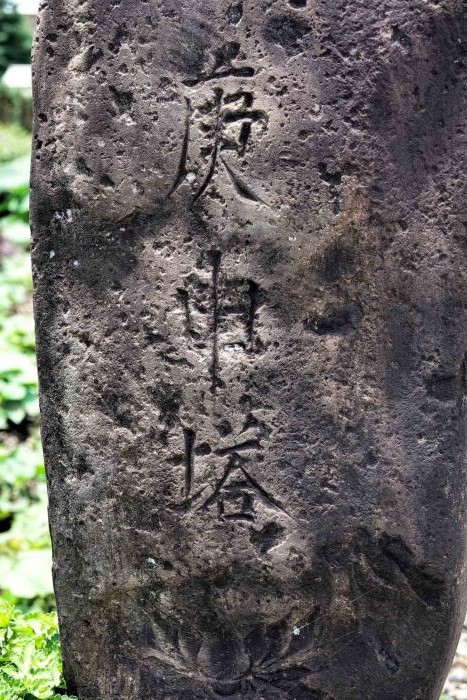 庚申塔